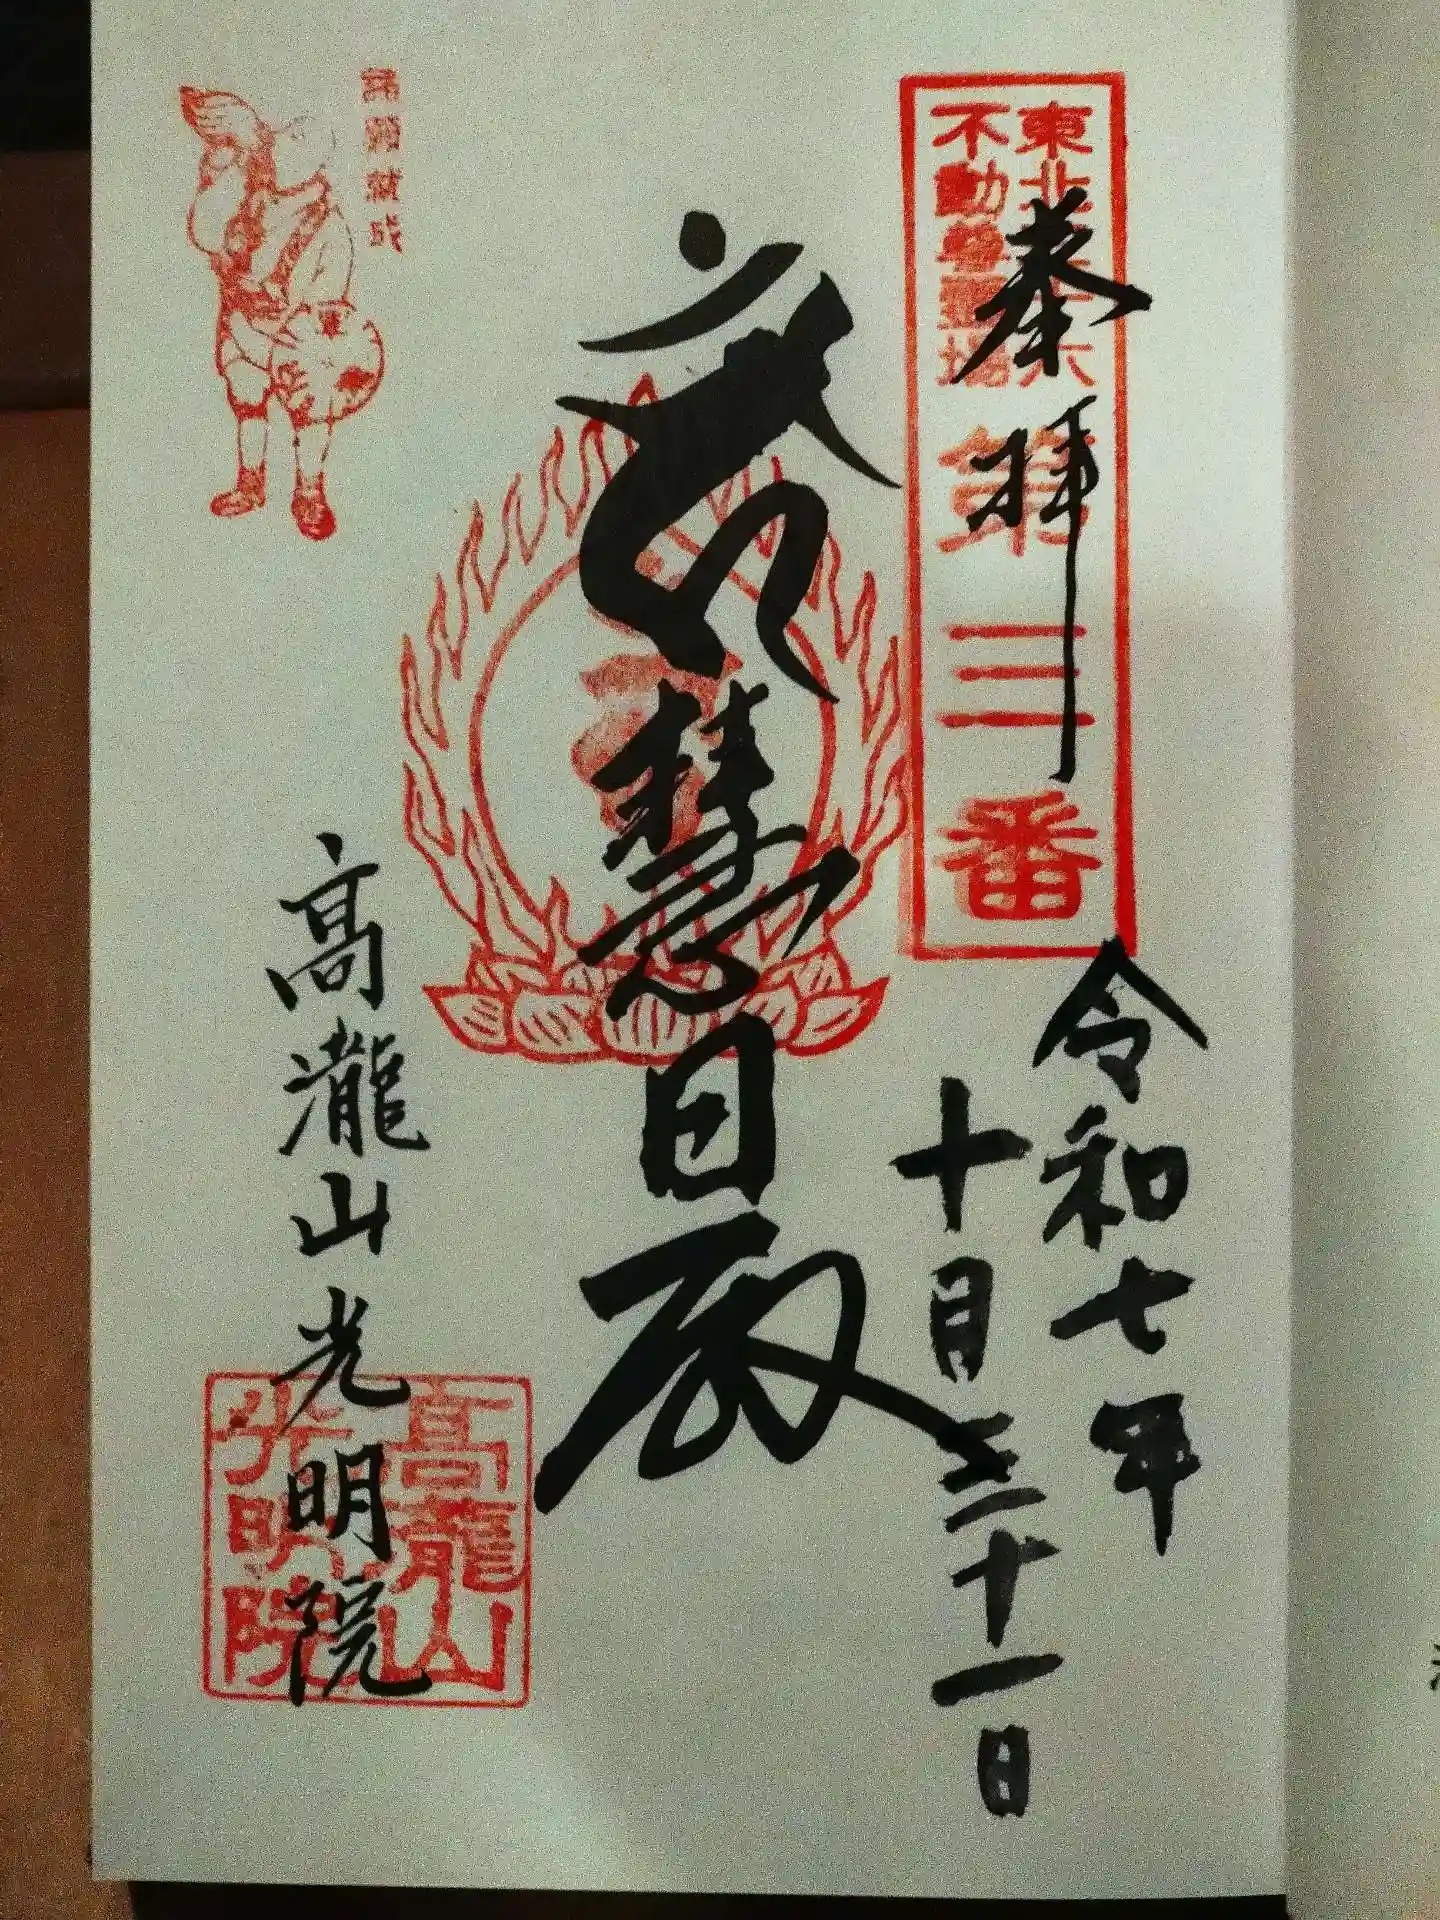 東北三十六
不動尊霊場
第三番
奉拝
令和七年
十月三十一日
慧日
高瀧山光明院
高龍山
光明院
諸願就成